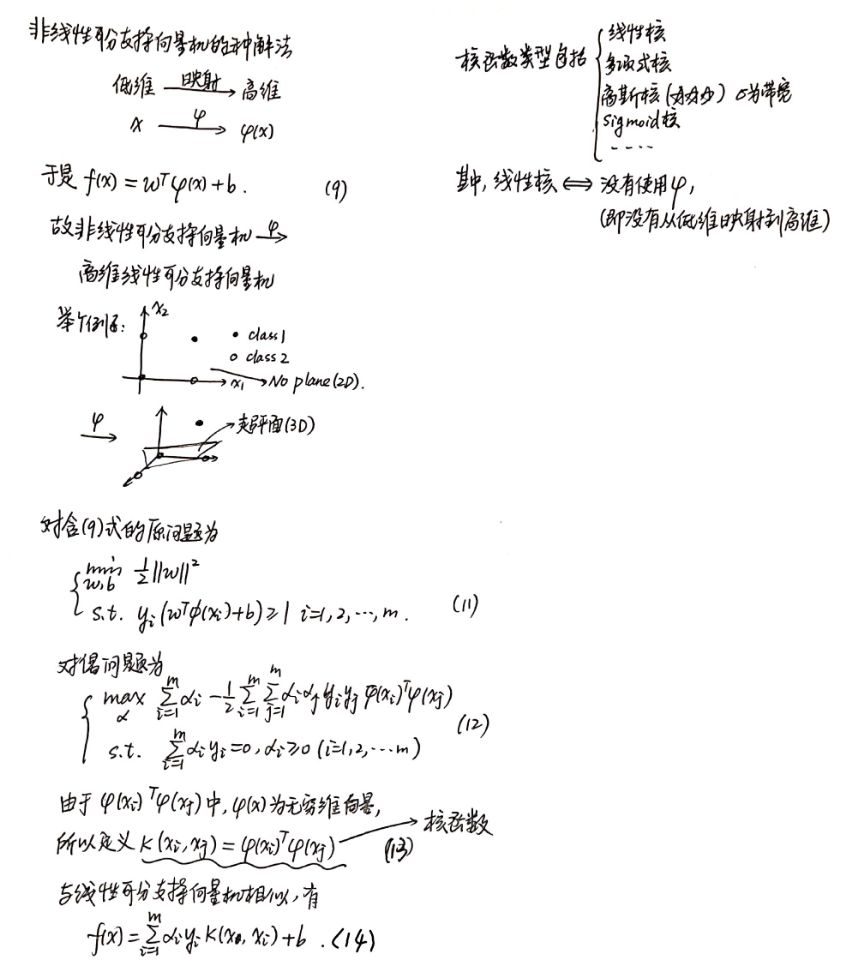 非线性可分支持向量机的一种解法
低维 映射→ 高维
x φ→ φ(x)
于是 f(x) = wᵀφ(x) + b. (9)
故非线性可分支持向量机 φ→
高维线性可分支持向量机
举个例子:
x₂
• class1
○ class2
x₁
No plane (2D).
φ→
超平面(3D)
对含(9)式的原问题为
{ min w,b ½||w||²
s.t. yᵢ(wᵀϕ(xᵢ)+b) ≥ 1 i=1,2,…,m. (11)
对偶问题为
{ max α ∑ᵢ₌₁ᵐ αᵢ − ½ ∑ᵢ₌₁ᵐ ∑ⱼ₌₁ᵐ αᵢαⱼyᵢyⱼ φ(xᵢ)ᵀφ(xⱼ)
s.t. ∑ᵢ₌₁ᵐ αᵢyᵢ=0, αᵢ≥0 (i=1,2,…m) (12)
由于 φ(xᵢ)ᵀφ(xⱼ)中, φ(x)为无穷维向量,
所以定义 K(xᵢ,xⱼ) = φ(xᵢ)ᵀφ(xⱼ) (13) → 核函数
与线性可分支持向量机相似, 有
f(x) = ∑ᵢ₌₁ᵐ αᵢyᵢ K(x, xᵢ) + b. (14)
核函数类型包括 { 线性核
多项式核
高斯核 σ为带宽
sigmoid核
....
其中, 线性核 ⟺ 没有使用φ,
(即没有从低维映射到高维)